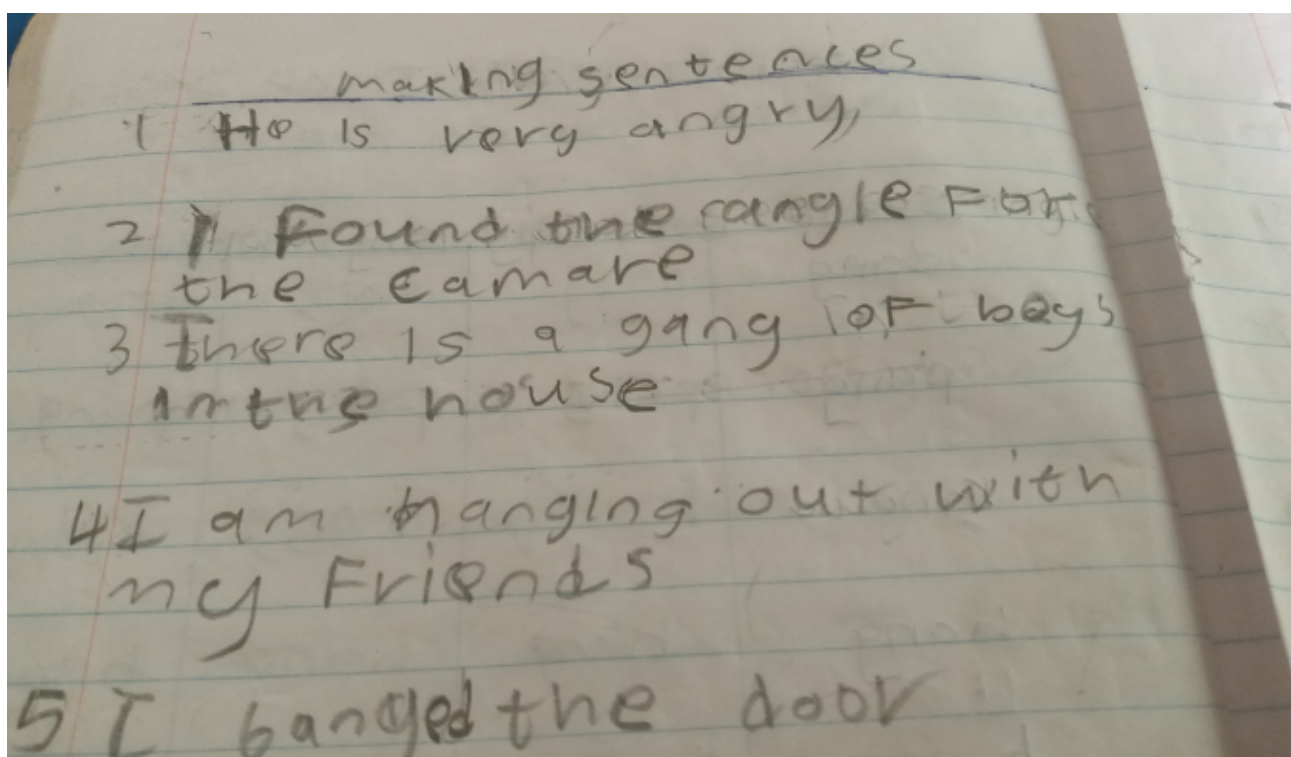 making sentences
1 He is very angry,
2 I Found the rangle For
the camare
3 There is a gang of boys
in the house
4 I am hanging out with
my Friends
5 I banged the door